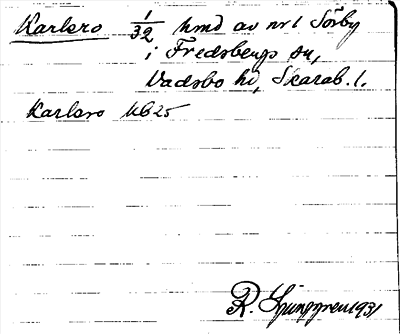 Karlsro 1/32 hmd av nr 1 Sörby
i Fredsbergs sn,
Vadsbo hd, Skarab. l.
Karlsro UB25
R. Ljunggren 1931